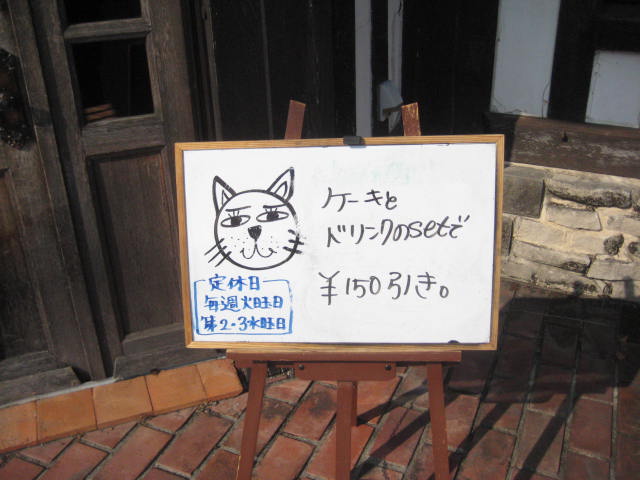 ケーキと
ドリンクのsetで
¥150引き。
定休日
毎週火曜日
第2・3水曜日